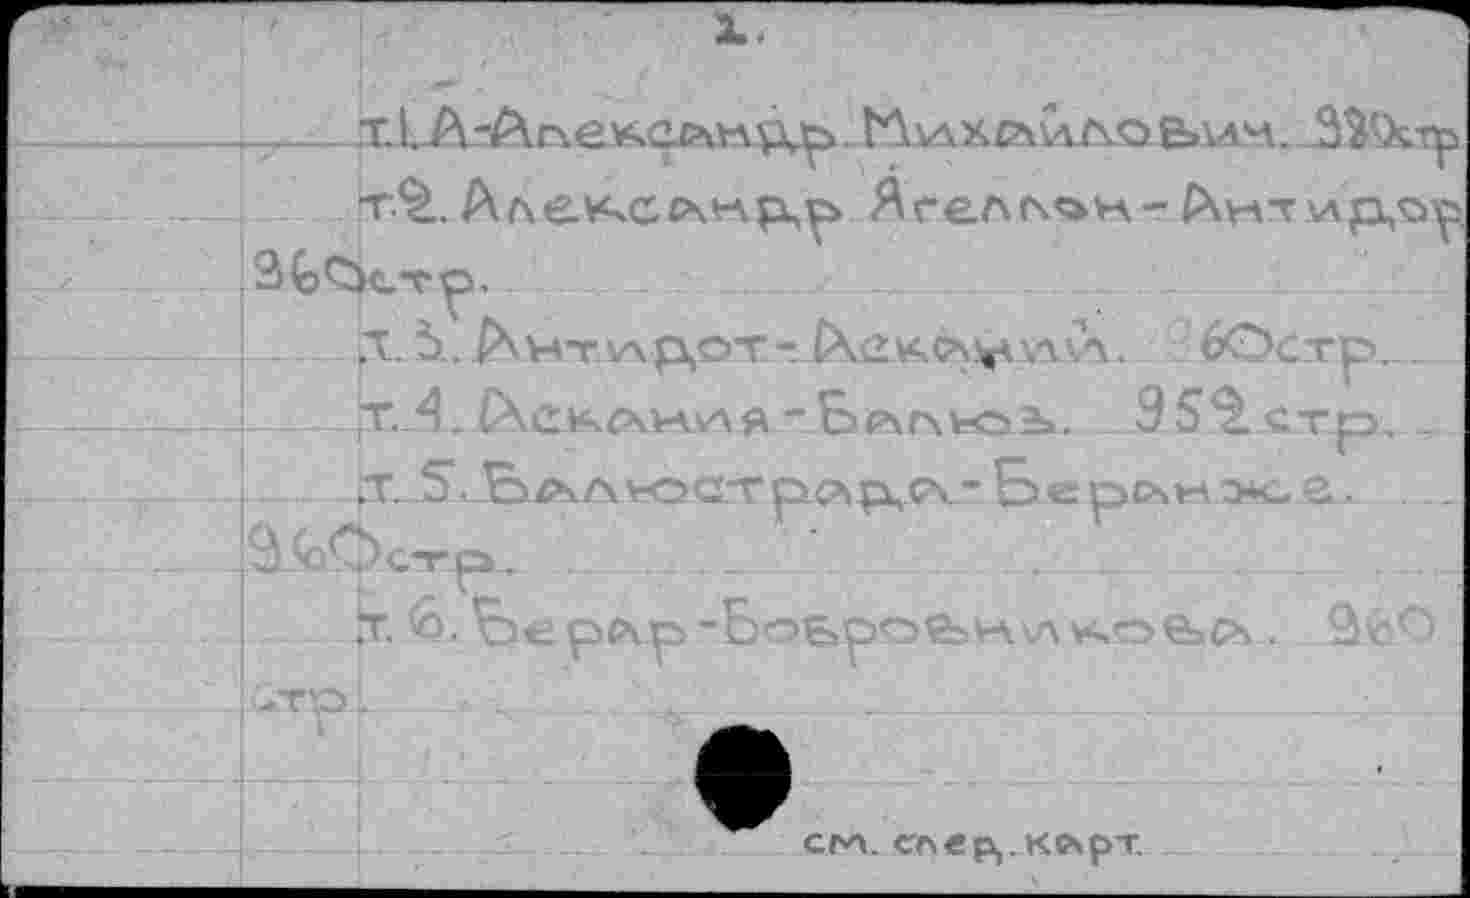 1.
т.1. А-Александр Михайлович. 320стр
т.2. Александр Ягеллон-Антидор
360стр.
т.3. Антидот-Аскания. 360стр.
т.4. Аскания-Балюз. 352стр.
т.5. Балюстрада-Беранже.
360стр.
т.6. Берар-Бобровникова. 360
стр.
см. след. карт.